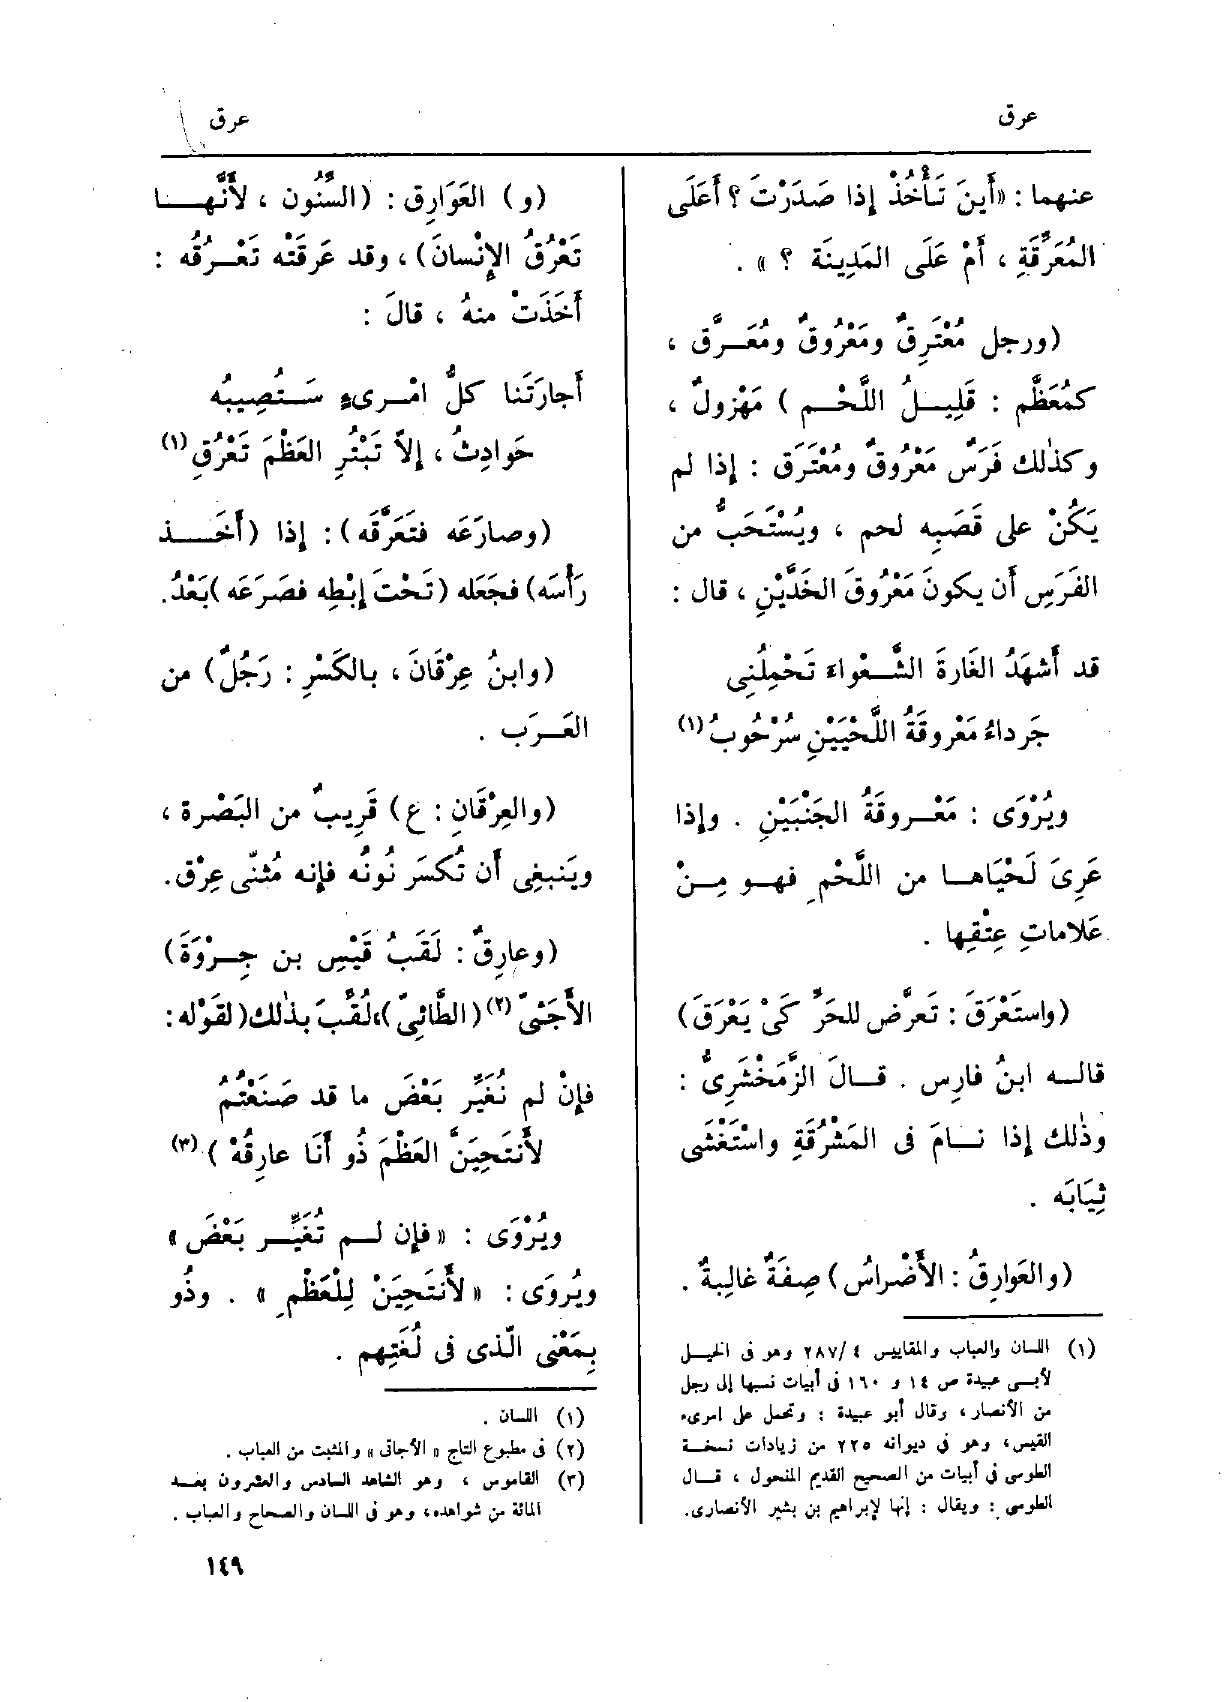 عرق
عرق
عنهما : «أَينَ تَأْخُذْ إِذا صَدَرْتَ ؟ أَعَلَى
المُعَرِّقَةِ ، أَمْ عَلَى المَدِينَة ؟ » .
(ورجل مُعْتَرِقٌ ومَعْرُوقٌ ومُعَرَّق ،
كمُعَظَّم : قَلِيلُ اللَّحْم ) مَهْزولٌ ،
وكذٰلك فَرَسٌ مَعْرُوقٌ ومُعْتَرَق : إِذا لم
يَكُنْ على قَصَبِه لحم ، ويُسْتَحَبُّ من
الفَرَسِ أَن يكونَ مَعْرُوقَ الخَدَّيْنِ ، قال :
قد أَشهَدُ الغَارةَ الشَّعْواءَ تَحْمِلُنِى
جَرداءُ مَعْروقَةُ اللَّحْيَيْنِ سُرْحُوبُ (١)
ويُرْوَى : مَعْروقَةُ الجَنْبَيْنِ . وإِذا
عَرِىَ لَحْيَاها من اللَّحْمِ فهو مِنْ
عَلاماتِ عِتْقِها .
(واستَعْرَقَ : تَعرَّض للحَرِّ كَىْ يَعْرَقَ)
قاله ابنُ فارِس . قالَ الزَّمَخْشَرِىُّ :
وذٰلك إِذا نامَ فى المَشْرُقَةِ واسْتَغْشَى
ثِيَابَه .
(والعَوارِقُ : الأَضْراسُ) صِفَةٌ غالِبةٌ .
(١) اللسان والعباب والمقاييس ٤ /٢٨٧ وهو فى الخيل
لأبى عبيدة ص ١٤ و ١٦٠ فى أبيات نسبها إلى رجل
من الأنصار ، وقال أبو عبيدة : وتحمل على امرىء
القيس، وهو فى ديوانه ٢٢٥ من زيادات نسخة
الطوسى فى أبيات من الصحيح القديم المنحول ، قال
الطوسى : ويقال : إنها لإبراهيم بن بشير الأنصارى.
(و) العَوَارِق : (السِّنُون ، لأَنَّها
تَعْرُقُ الإِنْسانَ) ، وقد عَرَقَتْه تَعْرُقُه :
أَخَذَتْ منهُ ، قالَ :
أَجارَتَنا كلُّ امْرِىءٍ سَتُصِيبُه
حَوادِثُ ، إِلاَّ تَبْتُرِ العَظْمَ تَعْرُقِ (١)
(وصارَعَه فتَعَرَّقَه) : إِذا (أَخَذ
رَأْسَه) فجَعَله (تَحْتَ إِبْطِه فصَرَعَه )بَعْدُ.
(وابنُ عِرْقَانَ ، بالكَسْرِ : رَجُلٌ) من
العَرَب .
(والعِرْقَانِ : ع) قَرِيبٌ من البَصْرة ،
ويَنبغِى أَن تُكسَرَ نُونُه فإِنه مُثنّى عِرْق.
(وعارِقٌ : لَقَبُ قَيْسِ بن جِرْوَةَ)
الأَجَئىّ (٢) (الطَّائِىّ)،لُقِّبَ بذٰلك(لقَوْله :
فإِنْ لم نُغَيِّر بَعْضَ ما قد صَنَعْتُمُ
لأَنتَحِيَنَّ العَظْمَ ذُو أَنَا عارِقُهْ ) (٣)
ويُرْوَى : «فإِن لم تُغَيِّر بَعْضَ »
ويُروَى : «لأَنتَحِيَنْ لِلْعَظْمِ » . وذُو
بِمَعْنى الّذى فى لُغَتِهم .
(١) اللسان .
(٢) فى مطبوع التاج « الأجائى » والمثبت من العباب .
(٣) القاموس ، وهو الشاهد السادس والعشرون بعد
المائة من شواهده، وهو فى اللسان والصحاح والعباب .
١٤٩